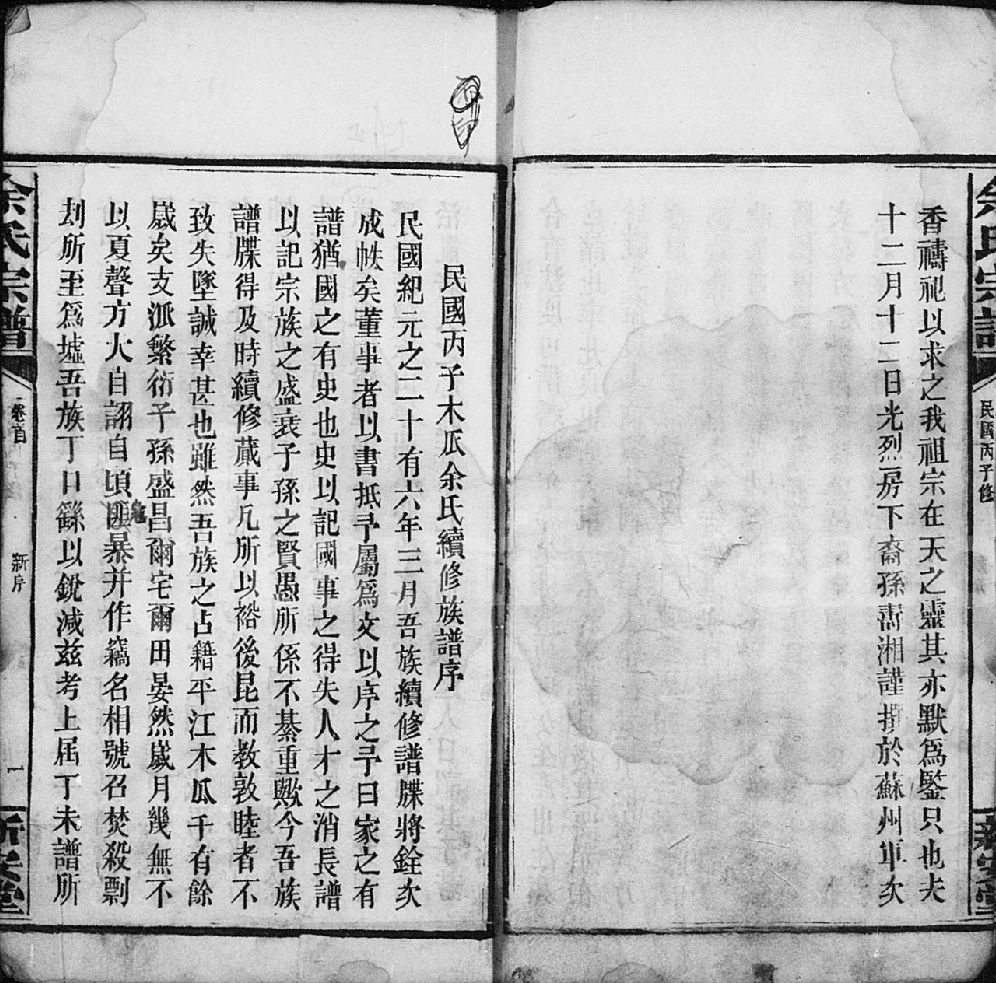 余氏宗譜
民國丙子修
新安堂
香禱祀以求之我祖宗在天之靈其亦默爲鑒只也夫
十二月十二日光烈房下裔孫籌湘謹撰於蘇州軍次
民國丙子木瓜余氏續修族譜序
民國紀元之二十有六年三月吾族續修譜牒將銓次
成帙矣董事者以書抵予屬爲文以序之予曰家之有
譜猶國之有史也史以記國事之得失人才之消長譜
以記宗族之盛衰子孫之賢愚所係不綦重歟今吾族
譜牒得及時續修蕆事凡所以裕後昆而教敦睦者不
致失墜誠幸甚也雖然吾族之占籍平江木瓜千有餘
歲矣支派繁衍子孫盛昌爾宅爾田晏然歲月幾無不
以夏聲方大自詡自頃匪暴并作竊名相號召焚殺剽
刦所至爲墟吾族丁口繇以銳減茲考上屆丁未譜所
余氏宗譜
卷首
新序
一
新安堂